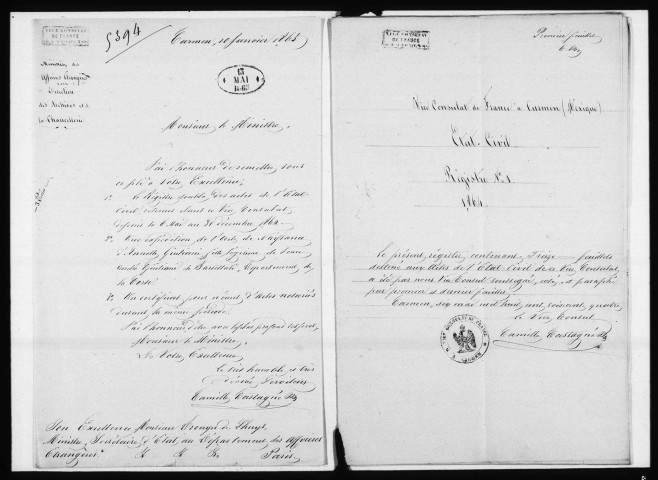 VICE CONSULAT
DE FRANCE
5394
Carmen, 10 Janvier 1865
Ministère des
Affaires Étrangères
Direction
des Archives et de
la Chancellerie
MAI
Monsieur le Ministre,
J'ai l'honneur de remettre, sous
ce pli à Votre Excellence,
1° Le Régistre double des actes de l'État
Civil retenus dans ce Vice Consulat
depuis le 6 Mai au 31 décembre 1864
2° Une expédition de l'acte de naissance
la Corse
3° Un certificat pour néant d'actes notariés
durant la même période.
J'ai l'honneur d'être avec le plus profond respect,
Monsieur le Ministre,
De Votre Excellence
Le très humble et très
dévoué Serviteur
Camille Castagné
Son Excellence Monsieur Drouyn de Lhuys
Ministre, Secrétaire d'État, au Département des Affaires
Étrangères & & & Paris
VICE CONSULAT
DE FRANCE
Premier feuillet
Vice Consulat de France à Carmen (Mexique)
État Civil
Régistre N° 1
1864
Le présent régistre contenant Treize feuillets
destiné aux Actes de l'État Civil de ce Vice Consulat,
a été par nous Vice Consul soussigné, coté, et paraphé
par premier et dernier feuillet.
Carmen, six mai mil huit cent soixante quatre,
Le Vice Consul
Camille Castagné